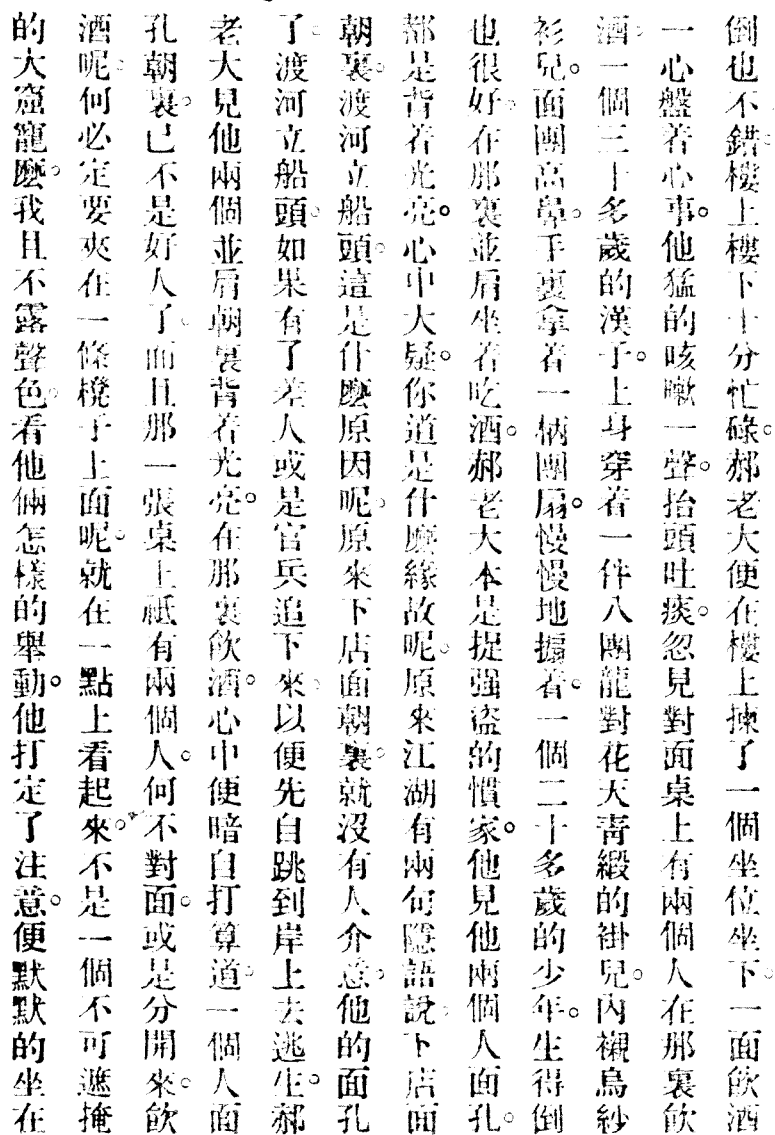 倒也不錯。樓上樓下十分忙碌。郝老大便在樓上揀了一個坐位坐下。一面飲酒
一心盤着心事。他猛的咳嗽一聲。抬頭吐痰。忽見對面桌上有兩個人在那裏飲
酒。一個三十多歲的漢子。上身穿着一件八團龍對花天青緞的褂兒。內襯烏紗
衫兒。面團高鼻。手裏拿着一柄團扇。慢慢地搧着。一個二十多歲的少年。生得倒
也很好。在那裏並肩坐着吃酒。郝老大本是捉强盜的慣家。他見他兩個人面孔。
都是背着光亮。心中大疑。你道是什麽緣故呢。原來江湖有兩句隱語說。下店面
朝裏。渡河立船頭。這是什麽原因呢。原來下店面朝裏。就沒有人介意。他的面孔
了。渡河立船頭。如果有了差人或是官兵追下來。以便先自跳到岸上去逃生。郝
老大見他兩個並肩朝裏背着光亮。在那裏飲酒。心中便暗自打算道。一個人面
孔朝裏。已不是好人了。而且那一張桌上祇有兩個人。何不對面。或是分開來。飲
酒呢。何必定要夾在一條櫈子上面呢。就在一點上看起來。不是一個不可遮掩
的大窟窿麽。我且不露聲色。看他倆怎樣的舉動。他打定了注意。便默默的坐在